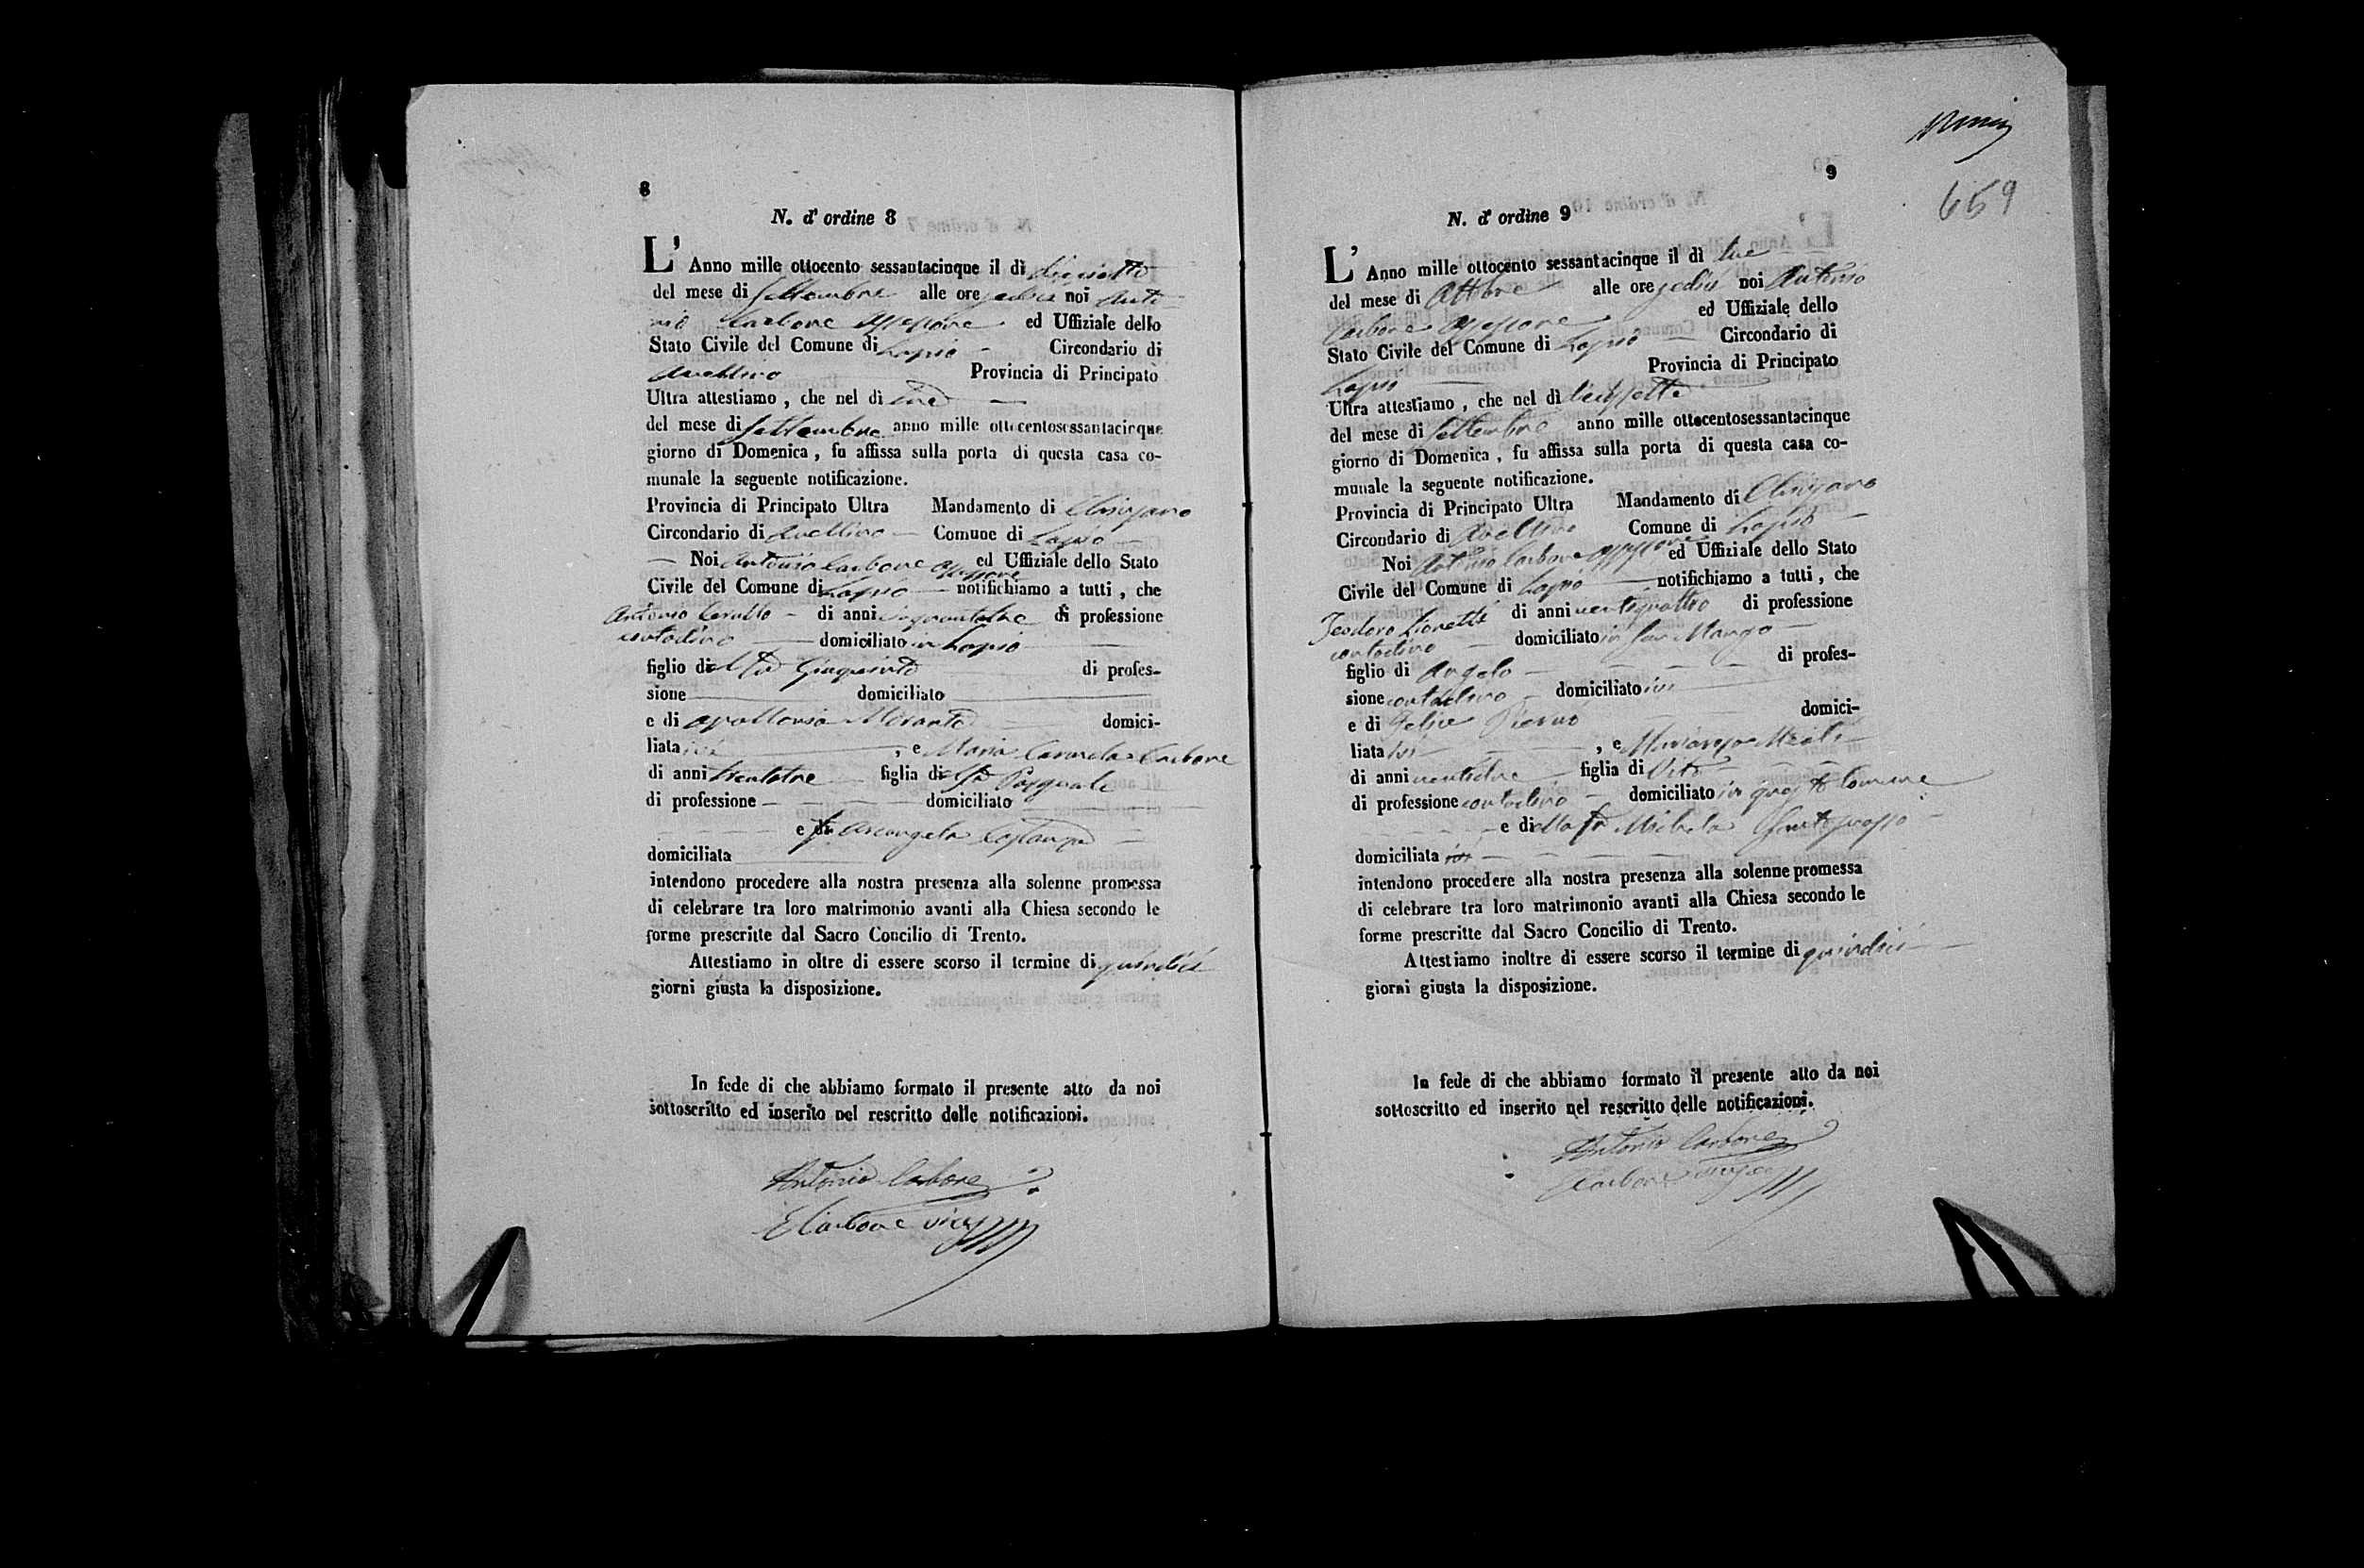 8
N. d' ordine 8
L' Anno mille ottocento sessantacinque il dì diciotto
del mese di Settembre alle ore sedici noi Anto
nio Carbone Assessore ed Uffiziale dello
Stato Civile del Comune di Lapio Circondario di
Avellino Provincia di Principato
Ultra attestiamo, che nel dì
del mese di Settembre anno mille ottocentosessantacinque
giorno di Domenica, fu affissa sulla porta di questa casa co-
munale la seguente notificazione.
Provincia di Principato Ultra Mandamento di Chiusano
Circondario di Avellino Comune di Lapio
Noi Antonio Carbone Assessore ed Uffiziale dello Stato
Civile del Comune di Lapio notifichiamo a tutti, che
Antonio Cerullo di anni cinquantatre di professione
contadino domiciliato in Lapio
figlio di di profes-
sione domiciliato
e di Apollonia domici-
liata ivi, e Maria Carmela Carbone
di anni trentatre figlia di Pasquale
di professione domiciliato
e Arcangela
domiciliata
intendono procedere alla nostra presenza alla solenne promessa
di celebrare tra loro matrimonio avanti alla Chiesa secondo le
forme prescritte dal Sacro Concilio di Trento.
Attestiamo in oltre di essere scorso il termine di quindici
giorni giusta la disposizione.
In fede di che abbiamo formato il presente atto da noi
sottoscritto ed inserito nel rescritto delle notificazioni.
Antonio Carbone
E Carbone
659
9
N. d' ordine 9
L' Anno mille ottocento sessantacinque il dì due
del mese di Ottobre alle ore sedici noi Antonio
Carbone Assessore ed Uffiziale dello
Stato Civile del Comune di Lapio Circondario di
Lapio Provincia di Principato
Ultra attestiamo, che nel dì
del mese di Settembre anno mille ottocentosessantacinque
giorno di Domenica, fu affissa sulla porta di questa casa co-
munale la seguente notificazione.
Provincia di Principato Ultra Mandamento di Chiusano
Circondario di Avellino Comune di Lapio
Noi Antonio Carbone Assessore ed Uffiziale dello Stato
Civile del Comune di Lapio notifichiamo a tutti, che
Teodoro Lionetti di anni ventiquattro di professione
contadino domiciliato in San Mango
figlio di Angelo di profes-
sione contadino domiciliato ivi
e di Felice Pierno domici-
liata ivi, e
di anni ventidue figlia di Vito
di professione contadino domiciliato in questo Comune
e della fu
domiciliata ivi
intendono procedere alla nostra presenza alla solenne promessa
di celebrare tra loro matrimonio avanti alla Chiesa secondo le
forme prescritte dal Sacro Concilio di Trento.
Attestiamo inoltre di essere scorso il termine di quindici
giorni giusta la disposizione.
In fede di che abbiamo formato il presente atto da noi
sottoscritto ed inserito nel rescritto delle notificazioni.
Antonio Carbone
Carbone